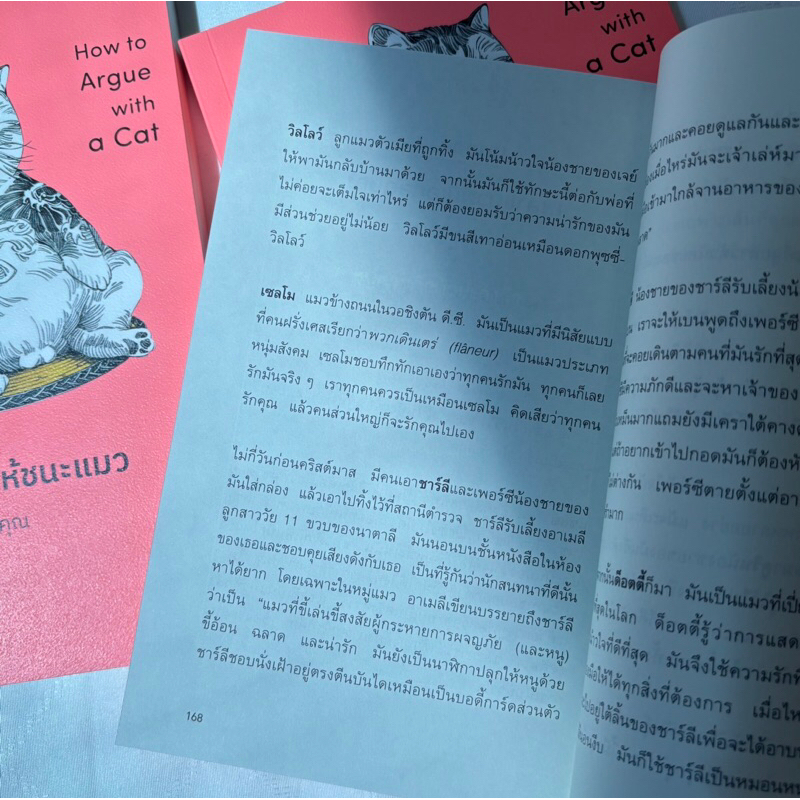 How to
Argue
with
a Cat
ห้ชนะแมว
คุณ
Argue
with
a Cat
วิลโลว์ ลูกแมวตัวเมียที่ถูกทิ้ง มันโน้มน้าวใจน้องชายของเจย์
ให้พามันกลับบ้านมาด้วย จากนั้นมันก็ใช้ทักษะนี้ต่อกับพ่อที่
ไม่ค่อยจะเต็มใจเท่าไหร่ แต่ก็ต้องยอมรับว่าความน่ารักของมัน
มีส่วนช่วยอยู่ไม่น้อย วิลโลว์มีขนสีเทาอ่อนเหมือนดอกพุซซี่-
วิลโลว์
เซลโม แมวข้างถนนในวอชิงตัน ดี.ซี. มันเป็นแมวที่มีนิสัยแบบ
ที่คนฝรั่งเศสเรียกว่าพวกเดินเตร่ (flâneur) เป็นแมวประเภท
หนุ่มสังคม เซลโมชอบทึกทักเอาเองว่าทุกคนรักมัน ทุกคนก็เลย
รักมันจริง ๆ เราทุกคนควรเป็นเหมือนเซลโม คิดเสียว่าทุกคน
รักคุณ แล้วคนส่วนใหญ่ก็จะรักคุณไปเอง
ไม่กี่วันก่อนคริสต์มาส มีคนเอาชาร์ลีและเพอร์ซีน้องชายของ
มันใส่กล่อง แล้วเอาไปทิ้งไว้ที่สถานีตำรวจ ชาร์ลีรับเลี้ยงอาเมลี
ลูกสาววัย 11 ขวบของนาตาลี มันนอนบนชั้นหนังสือในห้อง
ของเธอและชอบคุยเสียงดังกับเธอ เป็นที่รู้กันว่านักสนทนาที่ดีนั้น
หาได้ยาก โดยเฉพาะในหมู่แมว อาเมลีเขียนบรรยายถึงชาร์ลี
ว่าเป็น “แมวที่ขี้เล่นขี้สงสัยผู้กระหายการผจญภัย (และหนู)
ขี้อ้อน ฉลาด และน่ารัก มันยังเป็นนาฬิกาปลุกให้หนูด้วย
ชาร์ลีชอบนั่งเฝ้าอยู่ตรงตีนบันไดเหมือนเป็นบอดี้การ์ดส่วนตัว
168
มากและคอยดูแลกันและ
เมื่อไหร่มันจะเจ้าเล่ห์มา
เข้ามาใกล้จานอาหารของ
น้องชายของชาร์ลีรับเลี้ยงน้
เราจะให้เบนพูดถึงเพอร์ซี
จะคอยเดินตามคนที่มันรักที่สุด
มีความภักดีและจะหาเจ้าของ
เหม็นมากแถมยังมีเคราใต้คาง
ถ้าอยากเข้าไปกอดมันก็ต้องหั
ต่างกัน เพอร์ซีตายตั้งแต่อา
มาก
นั้นด็อตตี้ก็มา มันเป็นแมวที่เปี่
ที่สุดในโลก ด็อตตี้รู้ว่าการแสด
ใจที่ดีที่สุด มันจึงใช้ความรักที่
เพื่อให้ได้ทุกสิ่งที่ต้องการ เมื่อไห
ไปอยู่ใต้ลิ้นของชาร์ลีเพื่อจะได้อาบ
นอนงีบ มันก็ใช้ชาร์ลีเป็นหมอนห